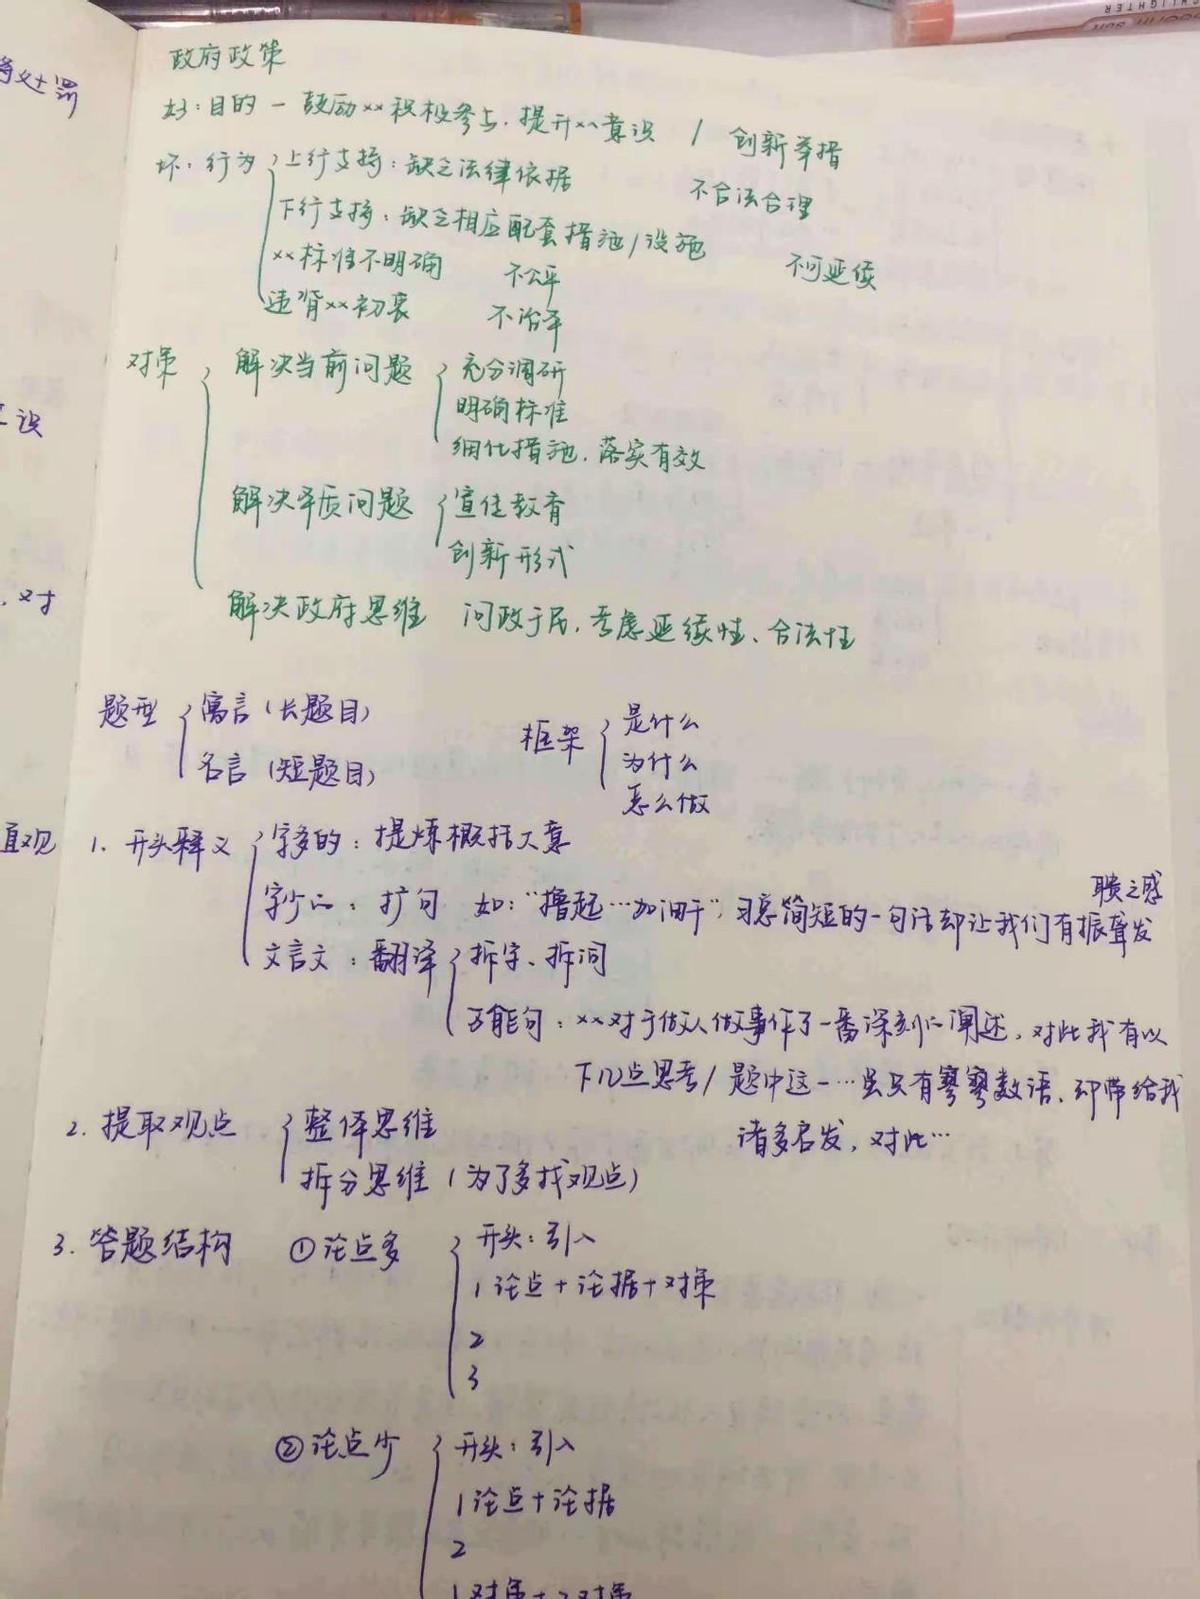 政府政策
好：目的 — 鼓励××积极参与．提升××意识 / 创新举措
坏：行为 上行支持：缺乏法律依据 不合法合理
下行支持：缺乏相应配套措施/设施 不可延续
××标准不明确 不公平
违背××初衷 不治本
对策 解决当前问题 充分调研
明确标准
细化措施．落实有效
解决本质问题 宣传教育
创新形式
解决政府思维 问政于民．考虑延续性、合法性
题型 寓言（长题目）
名言（短题目）
框架 是什么
为什么
怎么做
1. 开头释义 字多的：提炼概括大意
字少的：扩句 如："撸起…加油干"，习总简短的一句话却让我们有振聋发
聩之感
文言文：翻译 拆字、拆词
万能句：××对于做人做事作了一番深刻的阐述．对此我有以
下几点思考/ 题中这一…虽只有寥寥数语．却带给我
诸多启发．对此…
2. 提取观点 整体思维
拆分思维（为了多找观点）
3. 答题结构 ①论点多 开头：引入
1 论点+论据+对策
2
3
②论点少 开头：引入
1 论点+论据
2
1对策+2对策
处罚
识
．对
直观